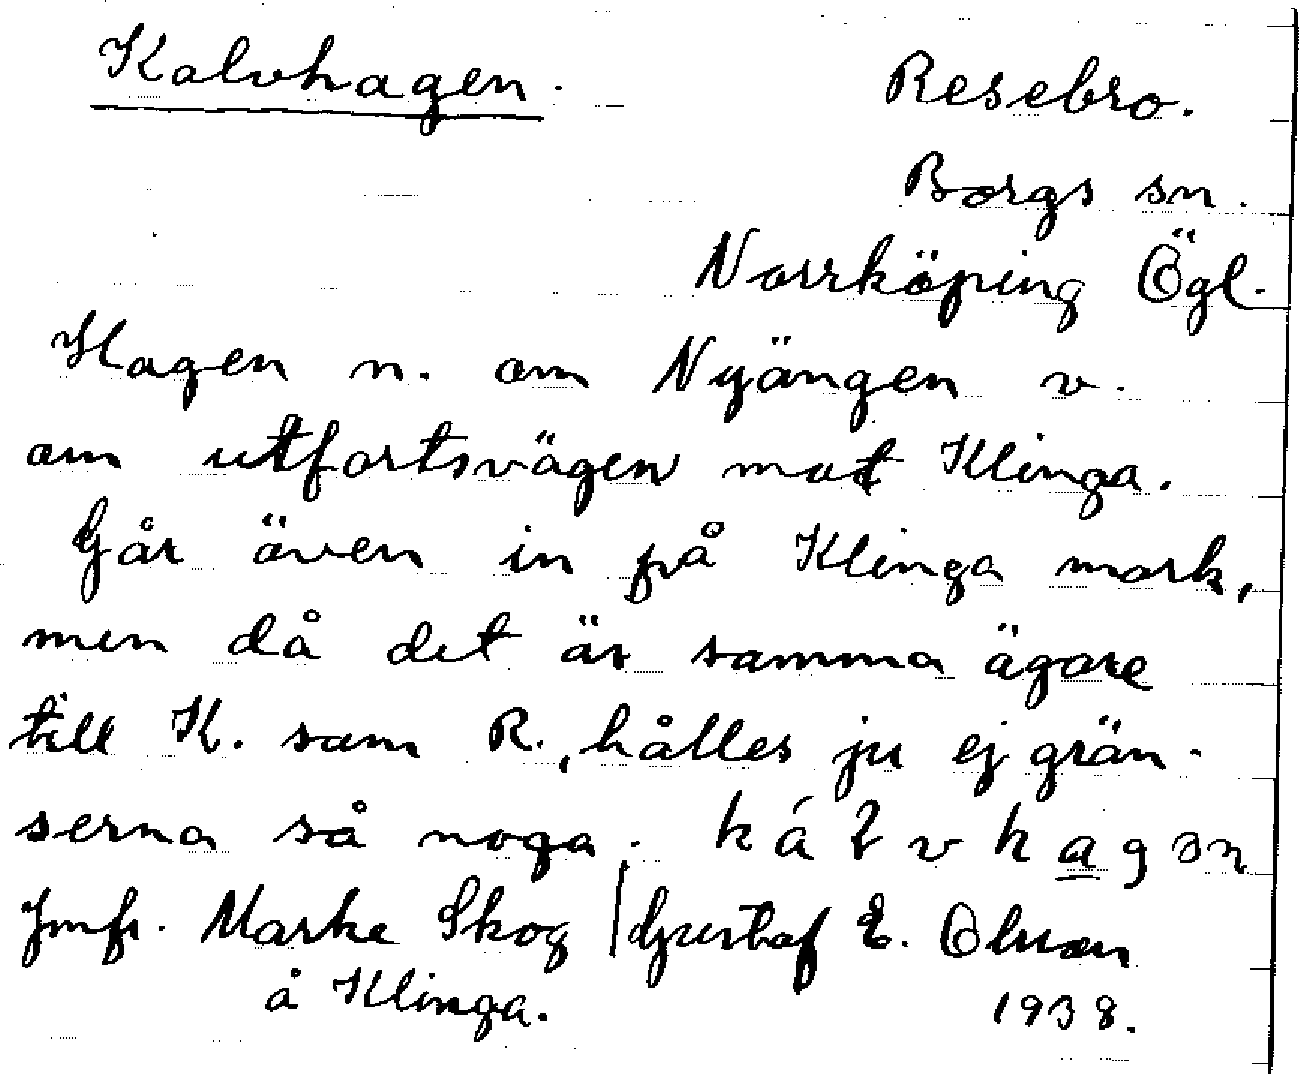 Kalvhagen. Resebro.
Borgs sn.
Norrköping Ögl.
Hagen n. om Nyängen v.
om utfartsvägen mot Klinga.
Går även in på Klinga mark,
men då det är samma ägare
till K. som R., hålles ju ej grän-
serna så noga.
Jmfr. Marke Skog / Gustaf E. Olsson
å Klinga. 1938.